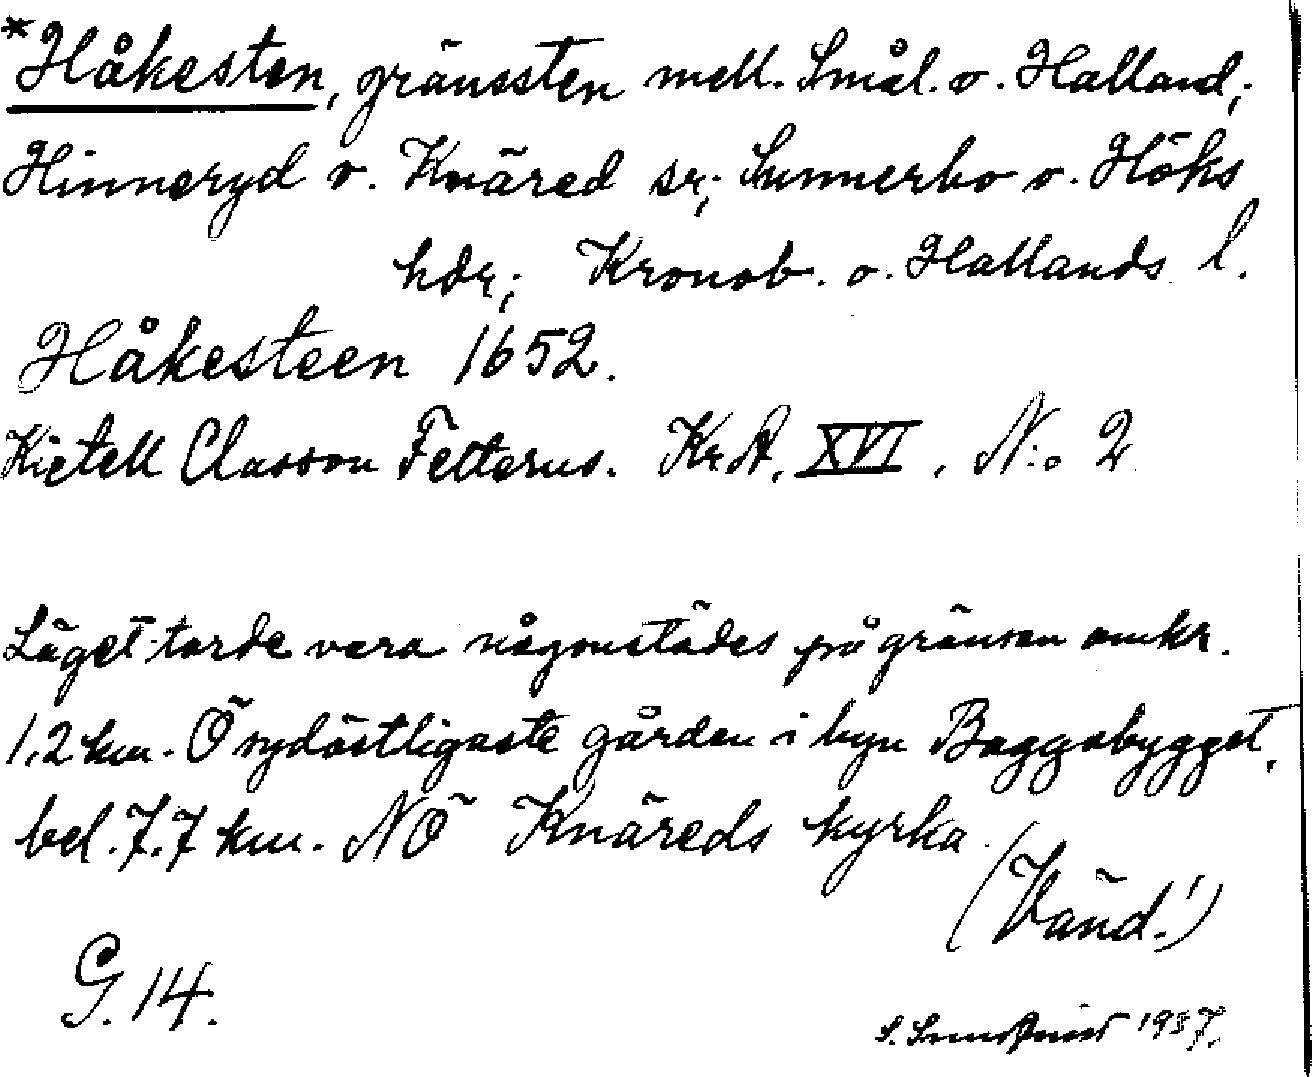 *Håkesten, gränssten mell. Smål. o. Halland;
Hinneryd o. Knäred sr; Sunnerbo o. Höks
hdr; Kronob. o. Hallands l.
Håkesteen 1652.
Kietell Classon Felterus. KrA, XVI, N:o 2
Läget torde vara någonstädes på gränsen omkr.
1,2 km. Ö sydöstligaste gården i byn Baggabygget,
bel. 7.7 km. NÖ Knäreds kyrka.
(Vänd!)
G. 14.
S. 1937.